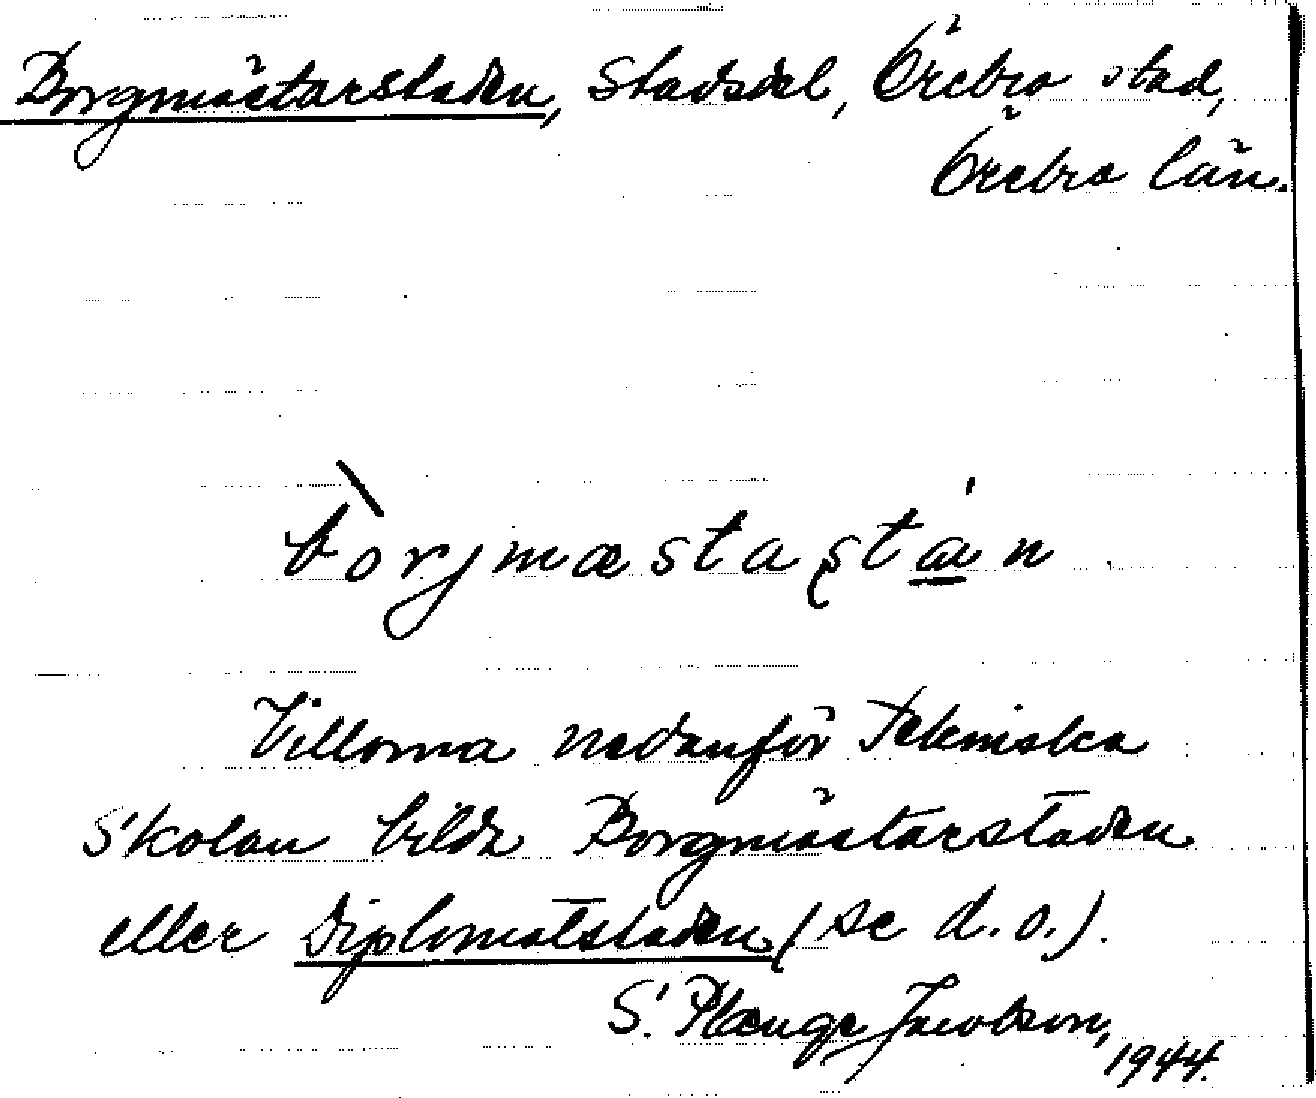 Borgmästarstaden, Stadsdel, Örebro stad,
Örebro län.
bòrjmæstaștán
Villorna nedanför Tekniska
Skolan bilda Borgmästarstaden
eller Diplomatstaden (se d.o.).
S. Plænge Jacobson,
1944.